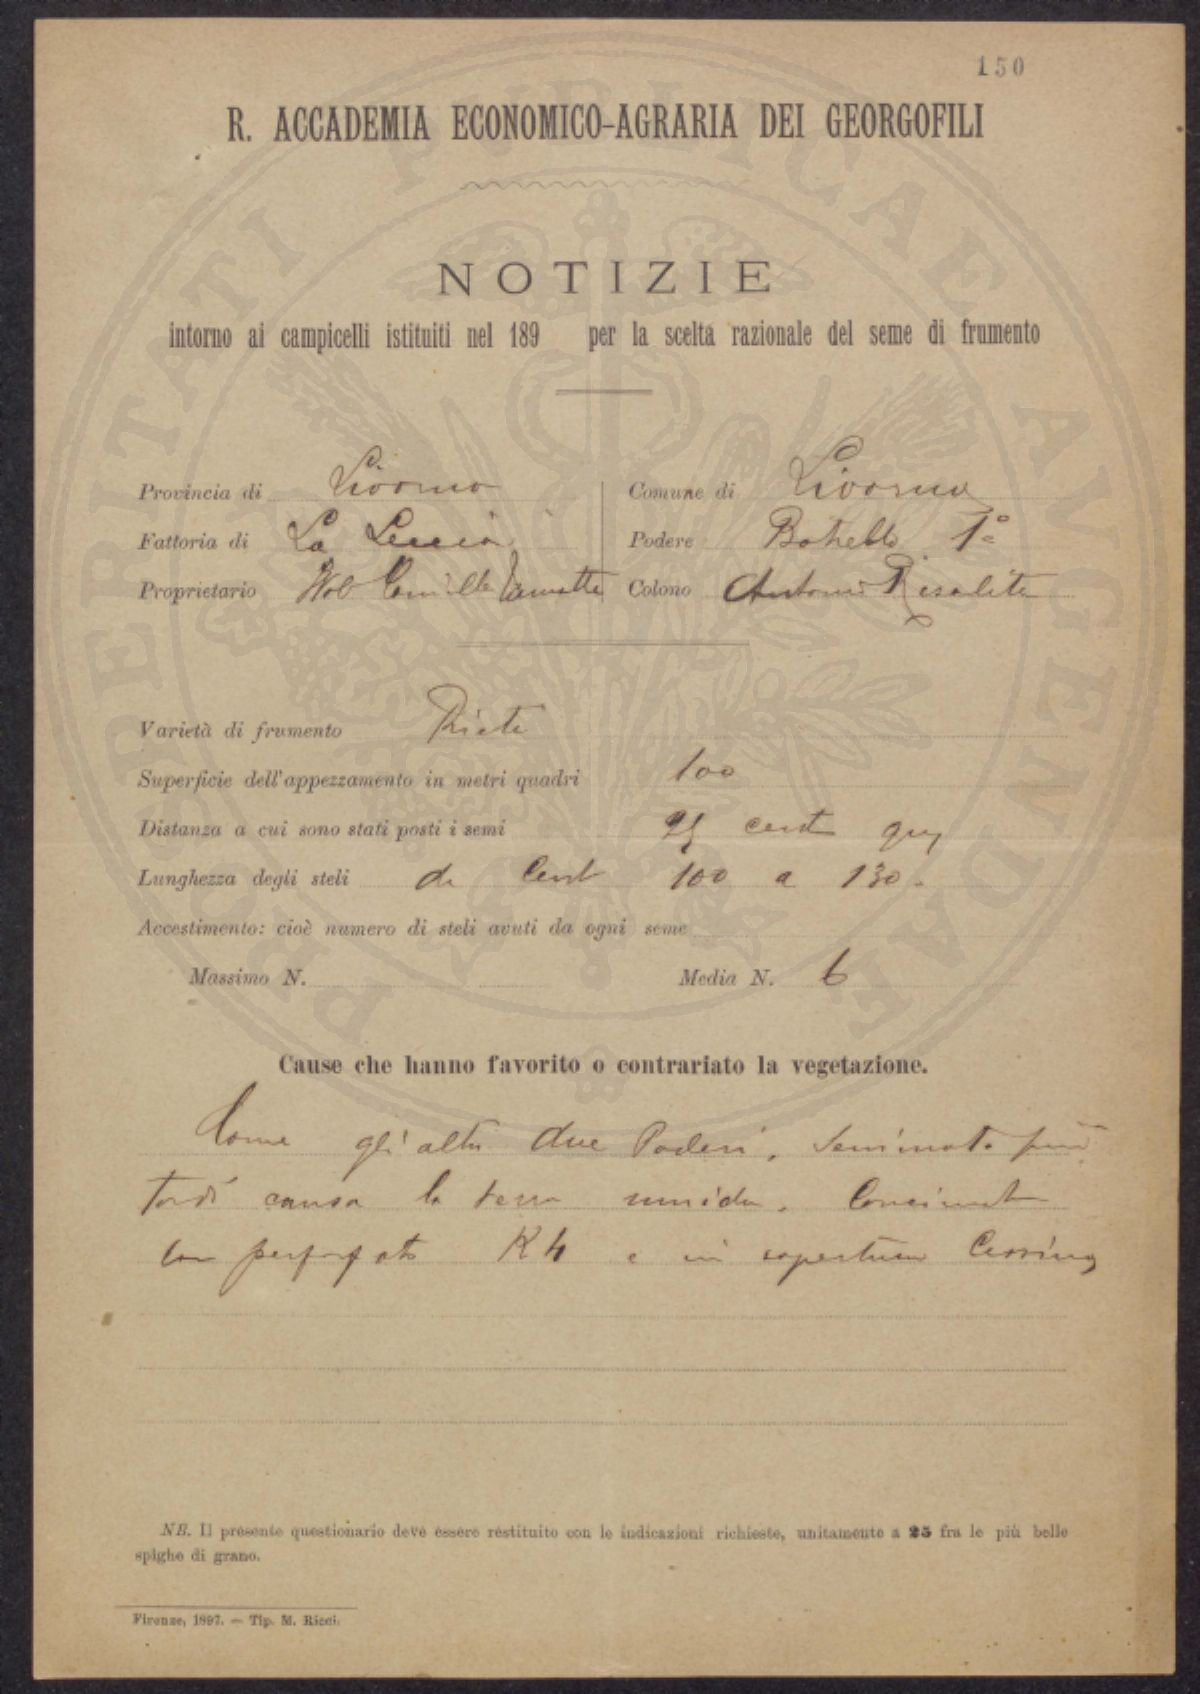 150
R. ACCADEMIA ECONOMICO-AGRARIA DEI GEORGOFILI
NOTIZIE
intorno ai campicelli istituiti nel 189 per la scelta razionale del seme di frumento
Provincia di Livorno
Comune di Livorno
Fattoria di La Leccia
Podere Botrello 1º
Proprietario
Colono Antonio Risaliti
Varietà di frumento Rieti
Superficie dell'appezzamento in metri quadri 100
Distanza a cui sono stati posti i semi 25 cent
Lunghezza degli steli da Cent 100 a 130.
Accestimento: cioè numero di steli avuti da ogni seme
Massimo N. Media N. 6
Cause che hanno favorito o contrariato la vegetazione.
Come gli altri due Poderi, Seminato più
tardi causa la terra umida. Concimato
con perfosfato K4 e in copertura
NB. Il presente questionario deve essere restituito con le indicazioni richieste, unitamente a 25 fra le più belle
spighe di grano.
Firenze, 1897. — Tip. M. Ricci.
PROSPERITATI PUBLICAE AUGENDAE